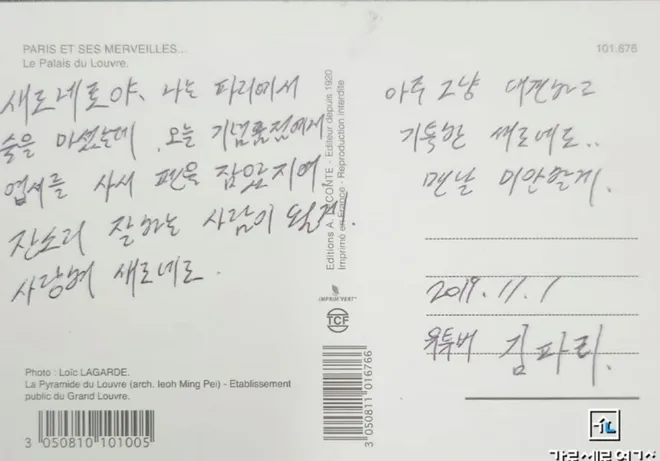 PARIS ET SES MERVEILLES...
Le Palais du Louvre.
101.676
새로네로야, 나는 파리에서
술을 마셨는데, 오늘 기념품점에서
엽서를 사서 펜을 잡았지여
잔소리 잘하는 사람이 될게.
사랑혀 새로네로.
아주 그냥 대견하고
기특한 새로네로..
맨날 미안할게.
2019.11.1
유튜버 김파리.
Editions A. LECONTE - Editeur depuis 1920
Imprimé en France - Reproduction interdite
IMPRIM'VERT®
TCF
Photo : Loïc LAGARDE.
La Pyramide du Louvre (arch. Ieoh Ming Pei) - Etablissement
public du Grand Louvre.
3 050810 101005
3 050811 016766
가로세로연구소